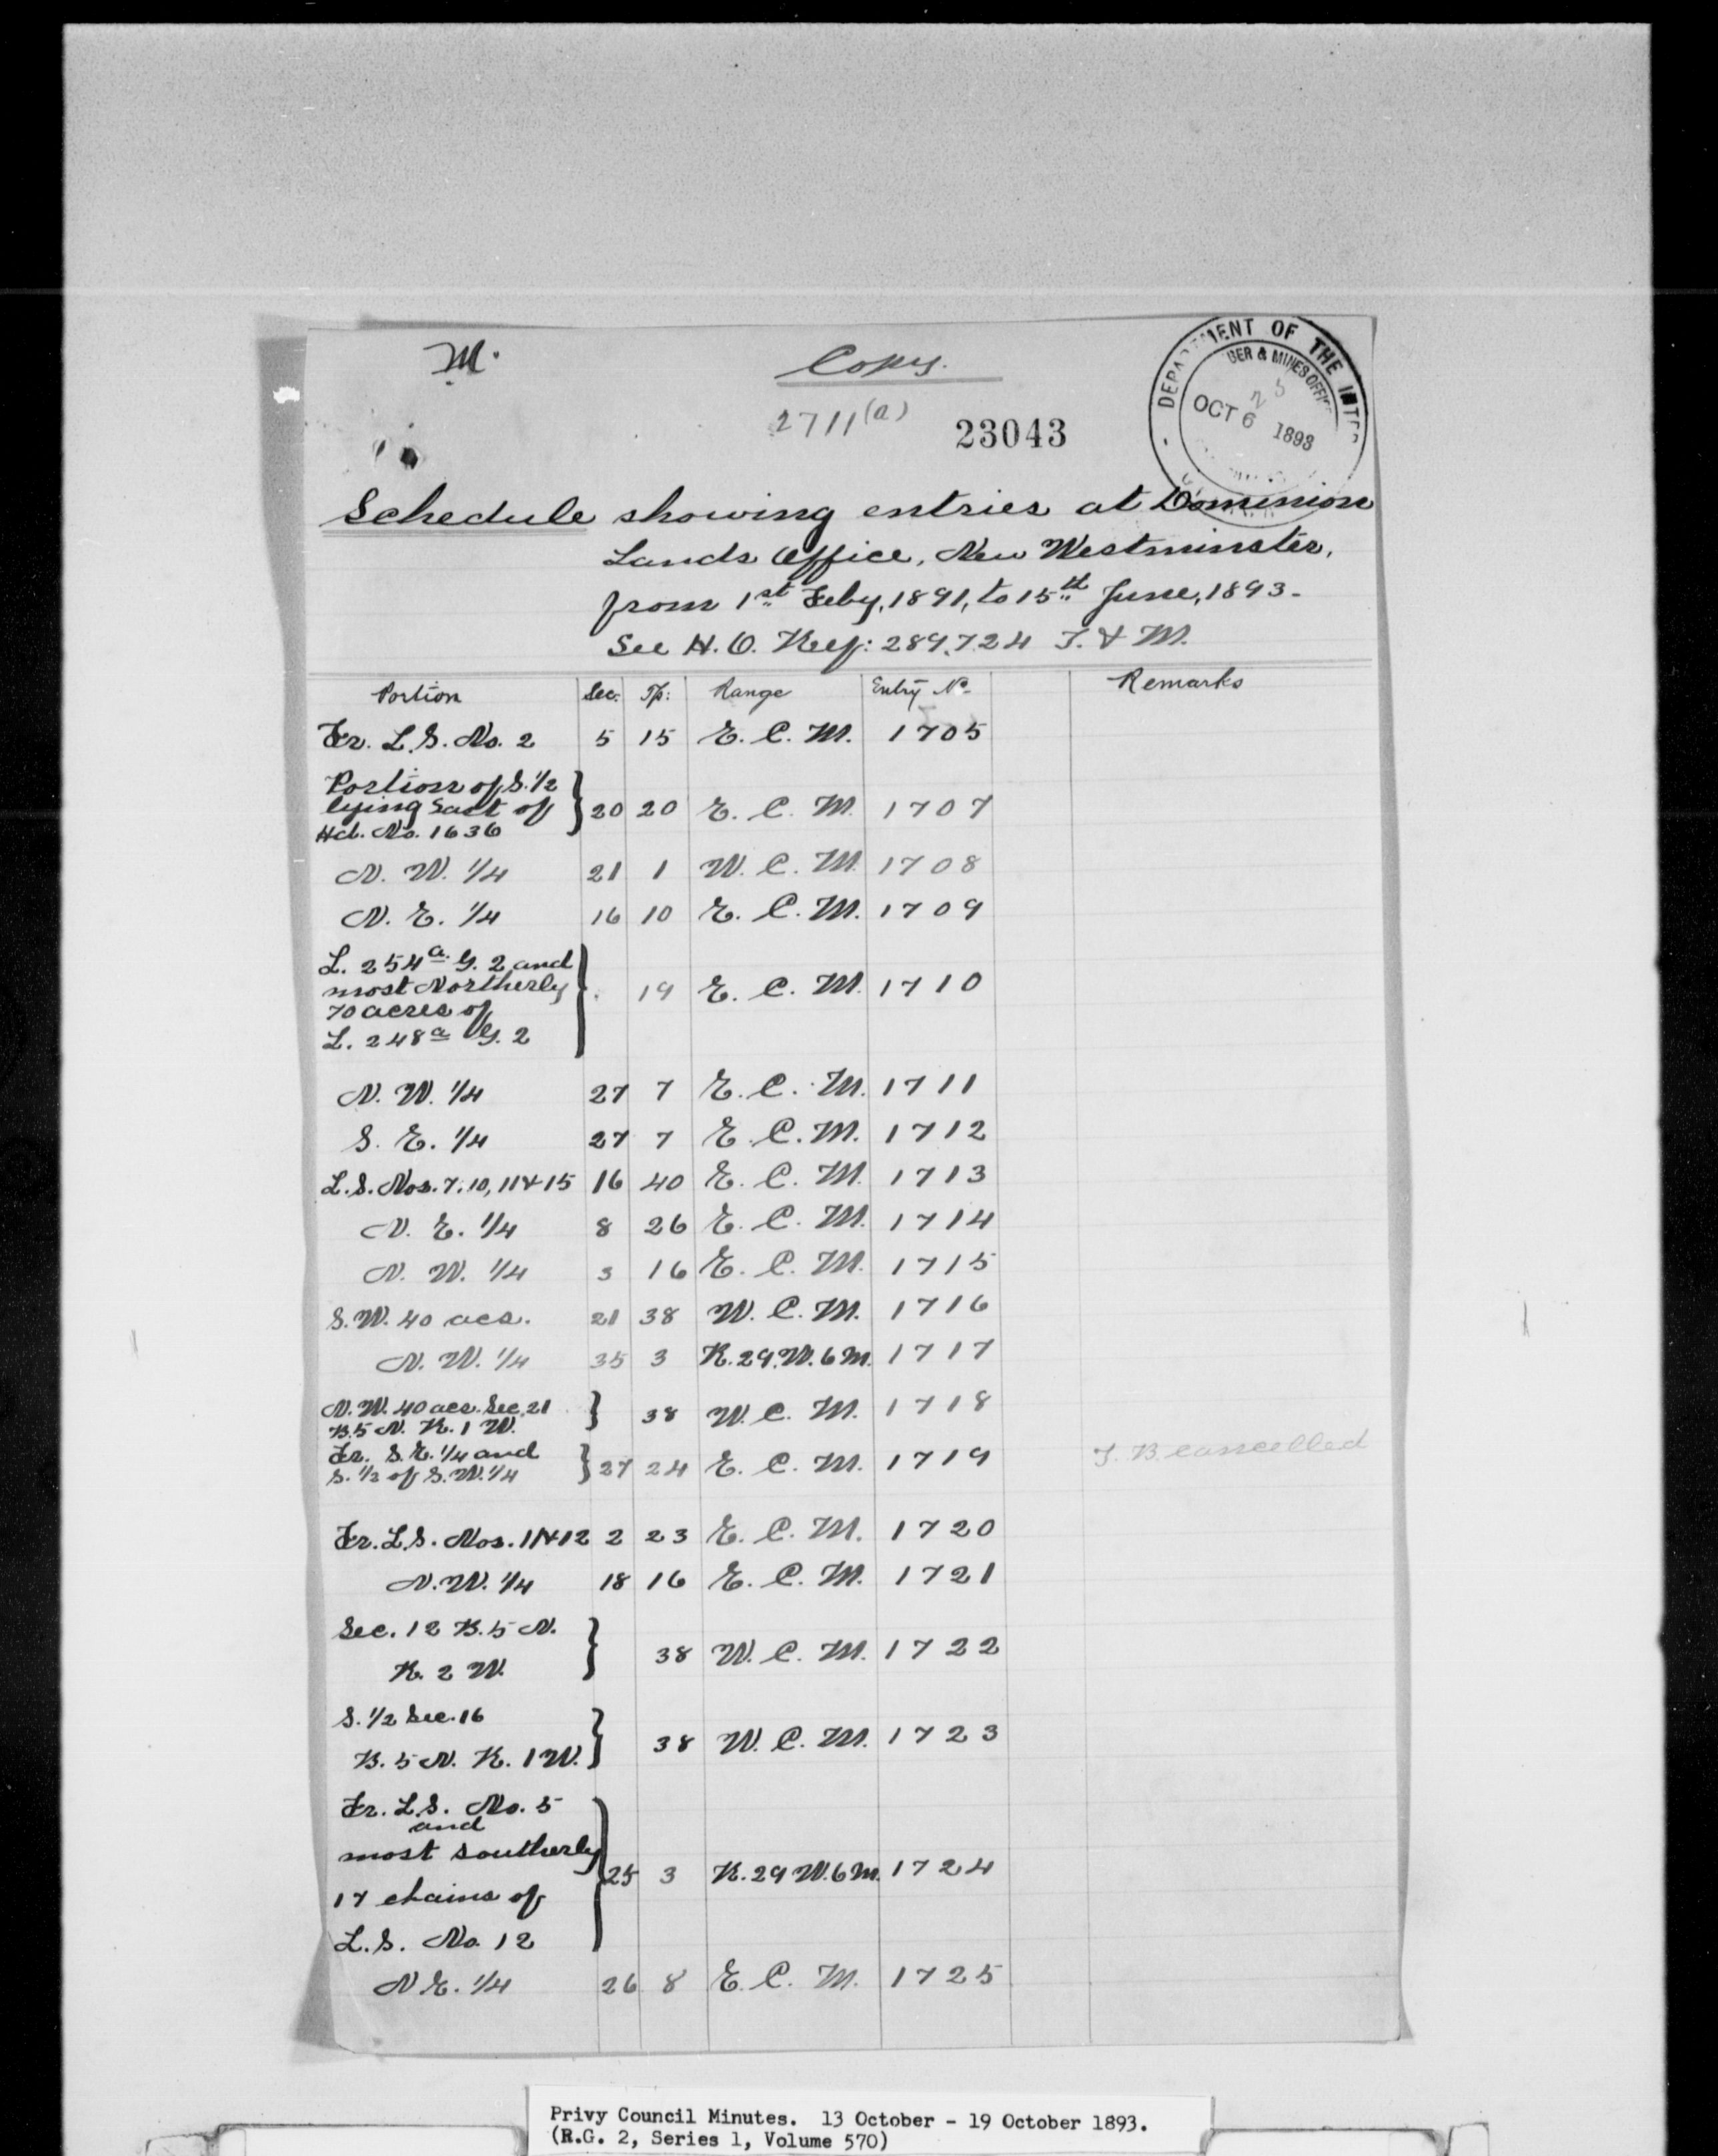 M.
Copy.
2711(a)
23043
DEPARTMENT OF THE INTER
BER & MINES OFFIC
25
OCT 6 1893
Schedule showing entries at Dominion
Lands Office, New Westminster,
from 1st Feby, 1891, to 15th June, 1893.
See H. O. Ref: 289,724 T. & M.
Portion Sec. Tp: Range Entry No. Remarks
Fr. L. S. No. 2 5 15 E. C. M. 1705
Portion of S. 1/2
lying East of 20 20 E. C. M. 1707
Hd. No. 1636
N. W. 1/4 21 1 W. C. M. 1708
N. E. 1/4 16 10 E. C. M. 1709
L. 254a G. 2 and
most Northerly 19 E. C. M. 1710
70 acres of
L. 248a G. 2
N. W. 1/4 27 7 E. C. M. 1711
S. E. 1/4 27 7 E. C. M. 1712
L. S. Nos. 7, 10, 11 & 15 16 40 E. C. M. 1713
N. E. 1/4 8 26 E. C. M. 1714
N. W. 1/4 3 16 E. C. M. 1715
S. W. 40 acs. 21 38 W. C. M. 1716
N. W. 1/4 35 3 R. 29. W. 6 M. 1717
N. W. 40 acs. Sec. 21 38 W. C. M. 1718
B. 5 N. R. 1 W.
Fr. S. E. 1/4 and 27 24 E. C. M. 1719 T. B. cancelled
S. 1/2 of S. W. 1/4
Fr. L. S. Nos. 11 & 12 2 23 E. C. M. 1720
N. W. 1/4 18 16 E. C. M. 1721
Sec. 12 B. 5 N.
R. 2 W. 38 W. C. M. 1722
S. 1/2 Sec. 16
B. 5 N. R. 1 W. 38 W. C. M. 1723
Fr. L. S. No. 5
and
most southerly 25 3 R. 29 W. 6 M. 1724
17 chains of
L. S. No. 12
N. E. 1/4 26 8 E. C. M. 1725
Privy Council Minutes. 13 October - 19 October 1893.
(R.G. 2, Series 1, Volume 570)